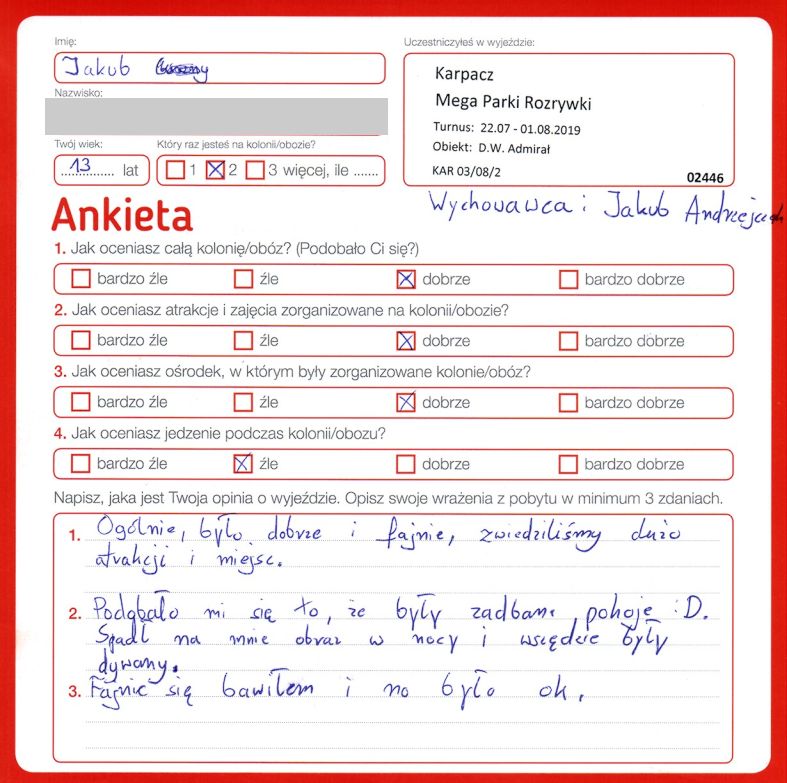 Imię:
Jakub
Uczestniczyłeś w wyjeździe:
Karpacz
Mega Parki Rozrywki
Turnus: 22.07 - 01.08.2019
Obiekt: D.W. Admirał
KAR 03/08/2
02446
Nazwisko:
Twój wiek:
13 lat
Który raz jesteś na kolonii/obozie?
1 2 3 więcej, ile .......
Wychowawca: Jakub
Ankieta
1. Jak oceniasz całą kolonię/obóz? (Podobało Ci się?)
bardzo źle źle dobrze bardzo dobrze
2. Jak oceniasz atrakcje i zajęcia zorganizowane na kolonii/obozie?
bardzo źle źle dobrze bardzo dobrze
3. Jak oceniasz ośrodek, w którym były zorganizowane kolonie/obóz?
bardzo źle źle dobrze bardzo dobrze
4. Jak oceniasz jedzenie podczas kolonii/obozu?
bardzo źle źle dobrze bardzo dobrze
Napisz, jaka jest Twoja opinia o wyjeździe. Opisz swoje wrażenia z pobytu w minimum 3 zdaniach.
1. Ogólnie, było dobrze i fajnie, zwiedziliśmy dużo
atrakcji i miejsc.
2. Podobało mi się to, że były zadbane pokoje :D.
Spadł na mnie obraz w nocy i wscędzie były
dywany.
3. Fajnie się bawiłem i no było ok.